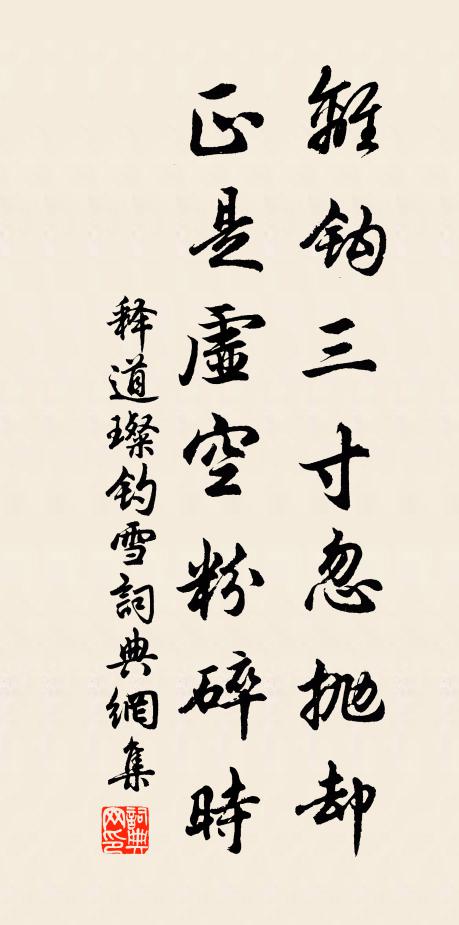 離鈎三寸忽抛却
正是虛空粉碎時
释道璨钓雪詞典網集
詞典网印